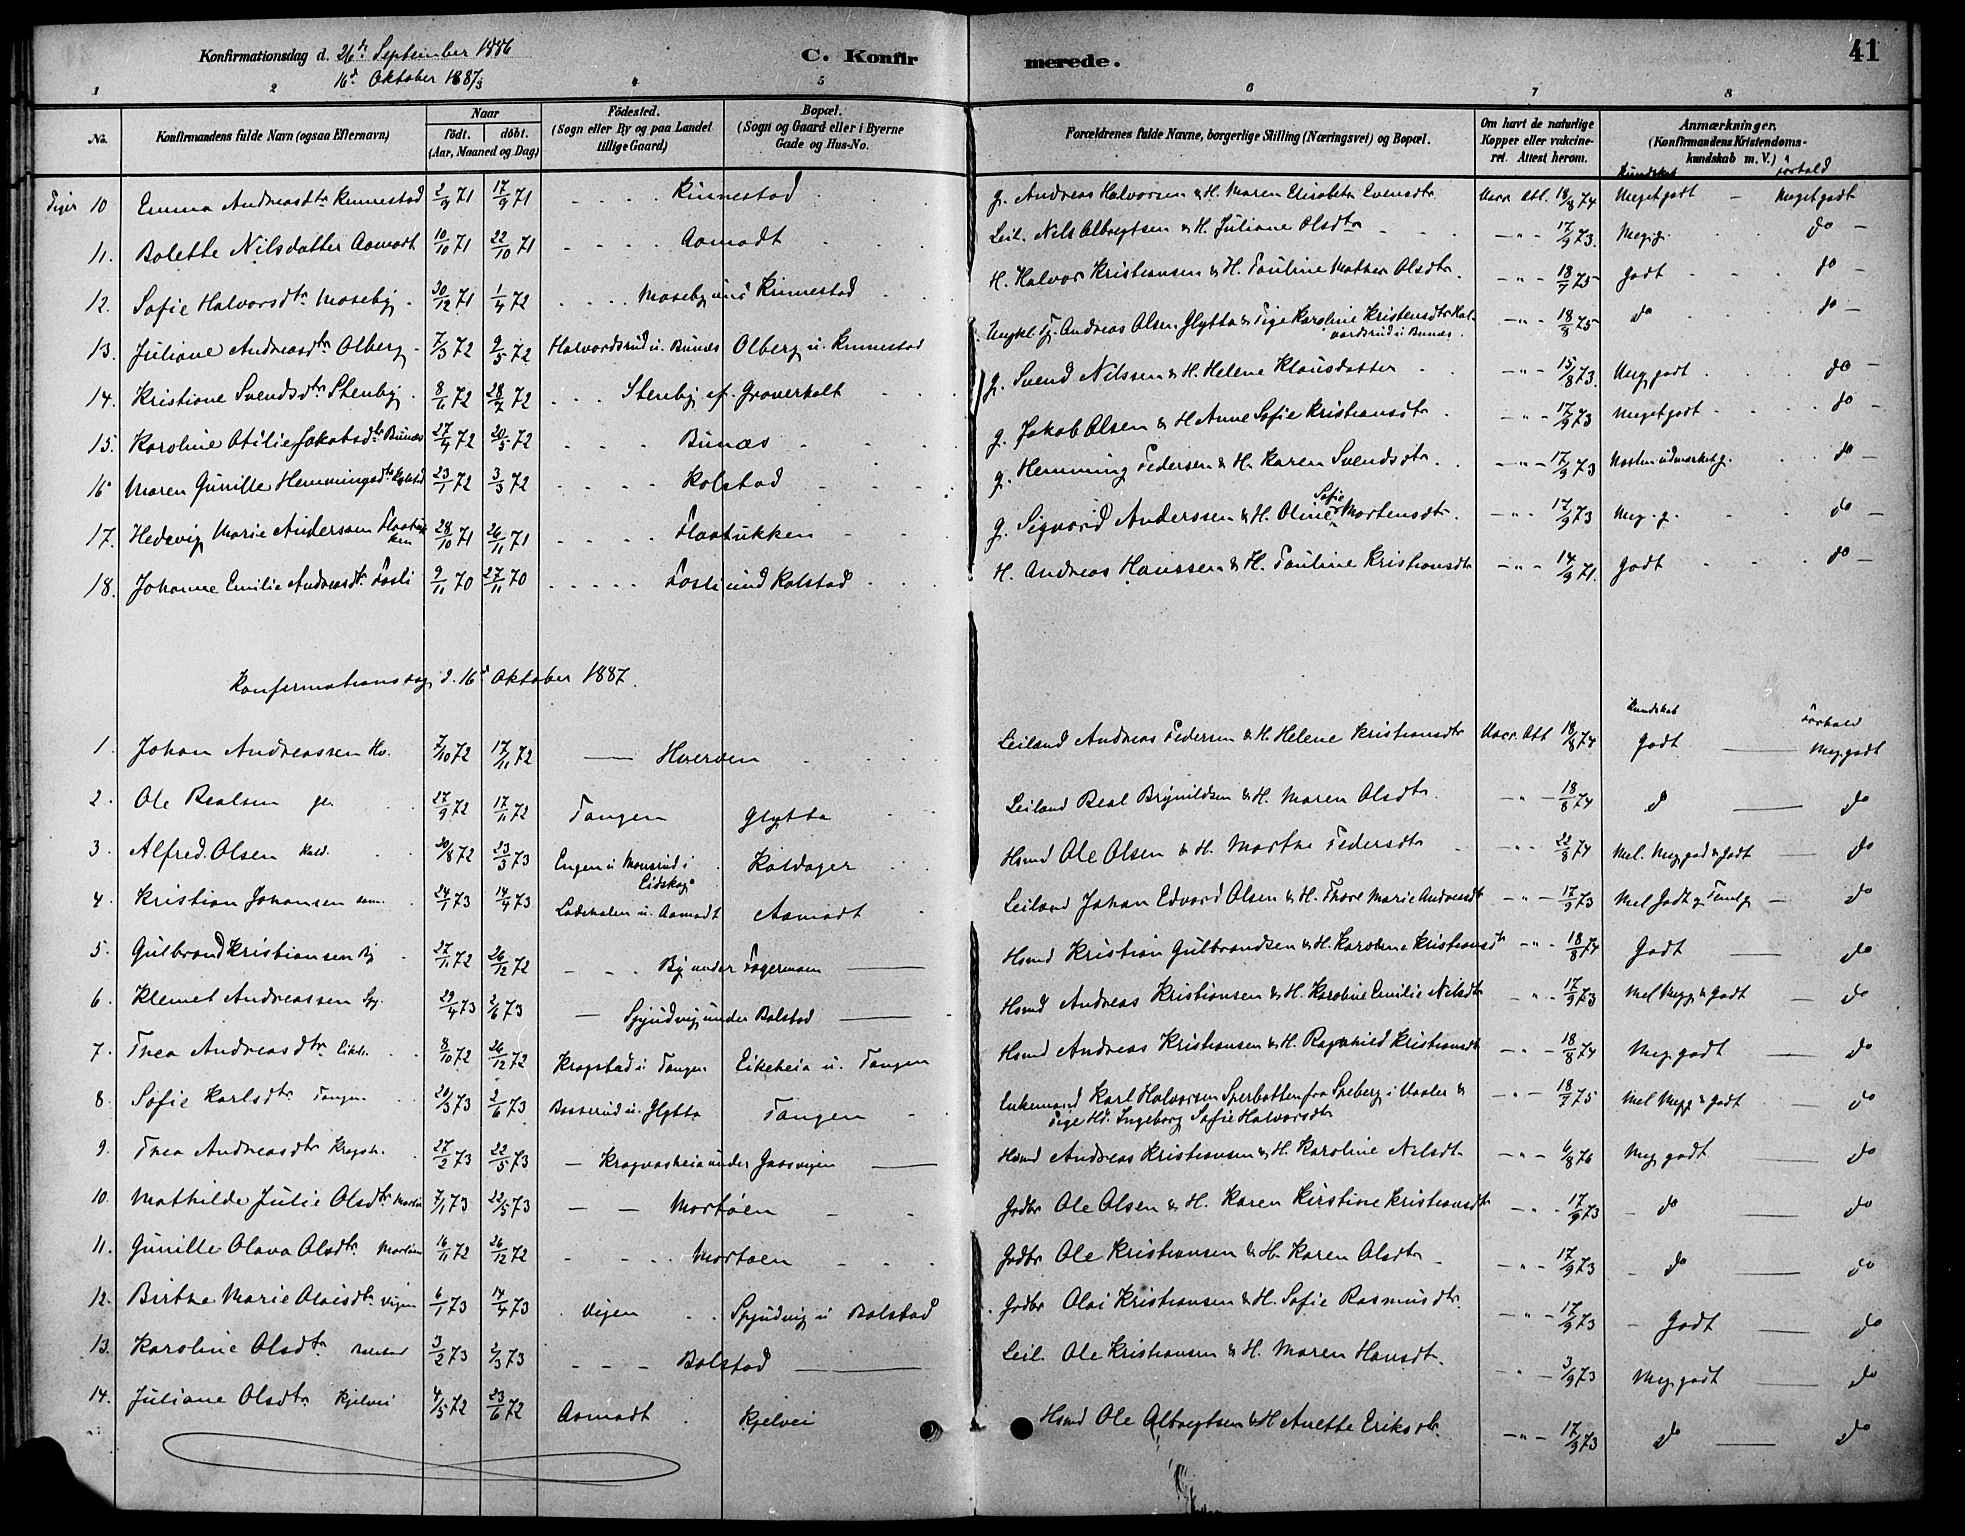 Konfirmationsdag d. 26de September 1886
16de Oktober 1887
C. Konfirmerede.
41
1 2 3 4 5 6 7 8
No.
Konfirmandens fulde Navn (ogsaa Efternavn)
Naar
födt. döbt.
(Aar, Maaned og Dag)
Födested.
(Sogn eller By og paa Landet tillige Gaard)
Bopæl.
(Sogn og Gaard eller i Byerne Gade og Hus-No.
Forældrenes fulde Navne, borgerlige Stilling (Næringsvei) og Bopæl.
Om havt de naturlige Kopper eller vakcineret. Attest herom.
Anmærkninger.
(Konfirmandens Kristendomskundskab m. V.)
Kundskab Forhold
Piger 10 Emma Andreasdtr Kinnestad 2/9 71 17/9 71 Kinnestad g. Andreas Halvorsen & H. Maren Elisabeth Evensdtr Vacc. Att. 18/8 74 Megetgodt - Megetgodt
11. Bolette Nilsdatter Aamodt 10/10 71 22/10 71 Aamodt Leil. Nils Albregtsen & H. Juliane Olsdtr - " - 17/9 73 Meg. g. do -
12. Sofie Halvorsdtr Moseby 30/12 71 1/4 72 Moseby und. Kinnestad H. Halvor Kristiansen & H. Pauline Mathea Olsdtr - " - 18/7 75 godt do -
13. Juliane Andreasdtr Olberg 7/3 72 9/5 72 Halvordsrud u. Bunæs Olberg u. Kinnestad Ungkl. Tj. Andreas Olsen Glytta & Pige Karoline Kristensdtr Halvordsrud u. Bunæs - " - 18/8 75 do do -
14. Kristiane Svendsdtr Stenby 8/6 72 28/7 72 Stenby af Graverholt g. Svend Nilssen & H. Helene Klausdatter - " - 15/8 73 Meg godt do -
15. Karoline Otilie Jakobsdtr Bunæs 27/4 72 20/5 72 Bunæs g. Jakob Olsen & H Anne Sofie Kristiansdtr - " - 17/9 73 Megetgodt do -
16 Maren Gunille Hemmingsdtr Kolstad 23/1 72 3/3 72 Kolstad g. Hemming Pedersen & H. Karen Svendsdtr - " - 17/9 73 Næsten udmærket g. do -
17. Hedevig Marie Anderssen Flaatukken 28/10 71 26/11 71 Flaatukken g. Sigvard Anderssen & H. Oline Sofie Mortensdtr. - " - 17/9 73 Meg. g. do -
18. Johanne Emilie Andreasdtr Fosli 9/11 70 27/11 70 Fosli und Kolstad H. Andreas Hanssen & H. Pauline Kristiansdtr - " - 14/9 71. Godt do -
Konfirmationsdag d. 16de Oktober 1887.
Kundskab Forhold
1. Johan Andreassen Hv. 7/10 72 17/11 72 - Hverven Leiland Andreas Pedersen & H. Helene Kristiansdtr Vacc. Att 18/8 74 Godt - Meg. godt
2. Ole Bealsen gl. 27/9 72 17/11 72 Tangen Glytta Leiland Beal Brynildsen & H. Maren Olsdtr. - " - 18/8 74 do - do
3. Alfred Olsen Kold. 30/8 72 23/3 73 Engen u Monsrud i Eidskog Koldager Hsmd Ole Olsen & H. Marthe Pedersdtr - " - 22/8 74 Mel. Meg god & Godt - do
4. Kristian Johansen 24/1 73 14/4 73 Ladehalen u. Aamodt Aamodt Leiland Johan Edvard Olsen & H. Thore Marie Andreasdtr - " - 17/9 73 Mel Godt og Temlg - do
5. Gulbrand Kristiansen By 27/11 72 26/12 72 By under Fagermoen - Hsmd Kristian Gulbrandsen & H. Karoline Kristiansdtr - " - 18/8 74 Godt - do
6. Klemet Andreassen Spj. 29/4 73 2/6 73 - Spjudvig under Bolstad - Hsmd Andreas Kristiansen & H. Karoline Emilie Nilsdtr - " - 17/9 73 Mel Meg. & Godt - do
7. Thea Andreasdtr Eikeh. 8/10 72 26/12 72 Krogstad u Tangen Eikeheia u. Tangen Hsmd Andreas Kristiansen & H. Ragnhild Kristiansdtr - " - 18/8 74 Meg. godt - do
8. Sofie Karlsdtr Tangen 20/3 73 2/6 73 Basserud u. Glytta Tangen Enkemand Karl Halvorsen Sperbotten fra Speberg i Vaaler & Pige Hd. Ingeborg Sofie Halvorsdtr - " - 18/7 75 Mel Meg & Godt - do
9. Thea Andreasdtr Krogv. 27/2 73 22/5 73 - Krogvasheia under Gaasvigen - Hsmd Andreas Kristiansen & H. Karoline Nilsdt - " - 6/8 76 Meg godt - do
10. Mathilde Julie Olsdtr Mortöen 7/1 73 22/5 73 - - Mortöen - - Gdbr Ole Olsen & H. Karen Kirstine Kristiansdtr - " - 17/9 73 - do - do
11. Gunille Olava Olsdtr Mortöen 16/11 72 26/12 72 Mortöen Gdbr Ole Kristiansen & H. Karen Olsdtr - " - 17/9 73 - do - do
12. Birthe Marie Olaisdtr Vigen 6/1 73 14/4 73 Vigen Spjudvig u Bolstad Gdbr Olai Kristiansen & H. Sofie Rasmusdtr. " - 17/9 73 - Godt - do
13. Karoline Olsdtr Bolstad 3/2 73 2/3 73 - - - Bolstad - Leil. Ole Kristiansen & H. Maren Hansdtr. " - 3/9 73 Meg. godt - do
14. Juliane Olsdtr Kjelvei 4/5 72 23/6 72 Aamodt Kjelvei Hsmd Ole Albregtsen & H Anette Eriksdtr. - " - 17/9 73 do - do